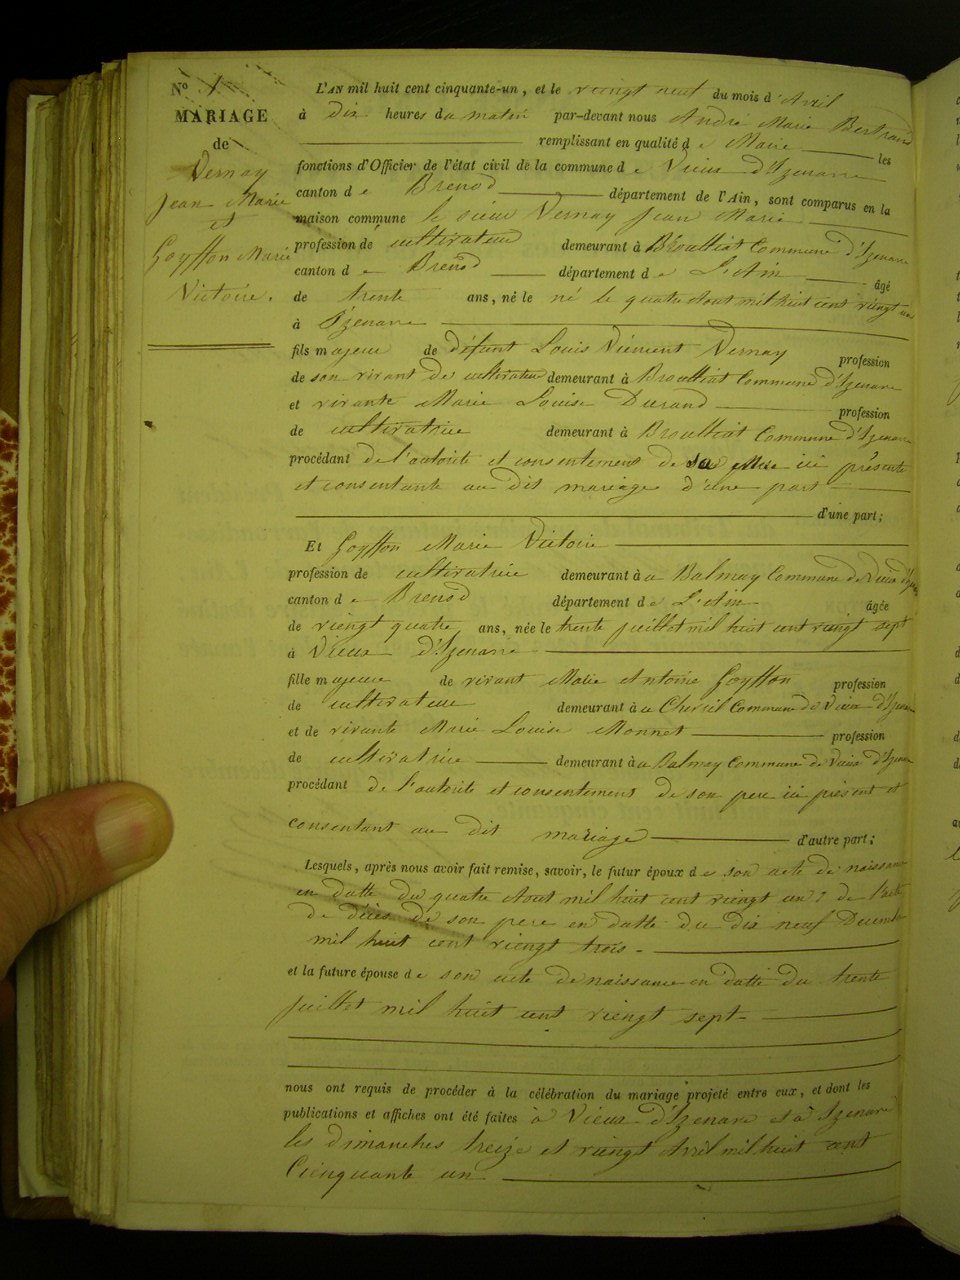 N° 1
MARIAGE
de
Vernay
Jean Marie
et
Goyffon Marie
Victoire.
L'AN mil huit cent cinquante-un, et le viengt neuf du mois d'Avril
à dix heures du matin par-devant nous André Marie Bertrand
remplissant en qualité de Maire les
fonctions d'Officier de l'état civil de la commune de Vieux d'Izenave
canton de Brenod département de l'Ain, sont comparus en la
maison commune le sieur Vernay Jean Marie
profession de cultivateur demeurant à Broultiat Commune d'Izenave
canton de Brenod département de L'Ain âgé
de trente ans, né le né le quatre Aout mil huit cent viengt un
à Izenave
fils majeur de défunt Louis Vernay profession
de son vivant de cultivateur demeurant à Broultiat Commune d'Izenave
et vivante Marie Louise Durand profession
de cultivatrice demeurant à Broultiat Commune d'Izenave
procédant de l'autorité et consentement de sa Mère ici présente
et consentante au dit mariage d'une part
d'une part;
Et Goyffon Marie Victoire
profession de cultivatrice demeurant à a Balmay Commune de Vieux d'Izenave
canton de Brenod département de L'Ain âgée
de viengt quatre ans, née le trente juillet mil huit cent viengt sept
à Vieux d'Izenave
fille majeure de vivant Antoine Goyffon profession
de cultivateur demeurant à a Commune de Vieux d'Izenave
et de vivante Marie Louise Monnet profession
de cultivatrice demeurant à a Balmay Commune de Vieux d'Izenave
procédant de l'autorité et consentement de son pere ici présent et
consentant au dit mariage d'autre part;
Lesquels, après nous avoir fait remise, savoir, le futur époux de son acte de naissance
en datte du quatre Aout mil huit cent viengt un; de l'acte
de décès de son pere en datte du dix neuf Decembre
mil huit cent viengt trois.
et la future épouse de son acte de naissance en datte du trente
juillet mil huit cent viengt sept
nous ont requis de procéder à la célébration du mariage projeté entre eux, et dont les
publications et affiches ont été faites à Vieux d'Izenave et à Izenave
les dimanches treize et viengt Avril mil huit cent
Cienquante un